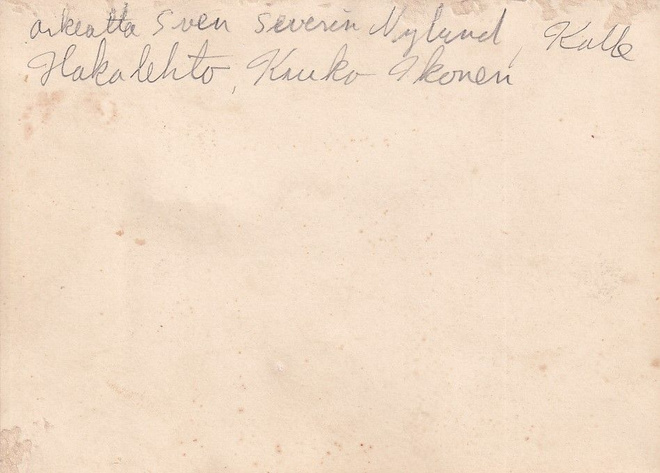 arkeatta Sven Severin Nylund, Kalle
Hakalehto, Kauko Ikonen